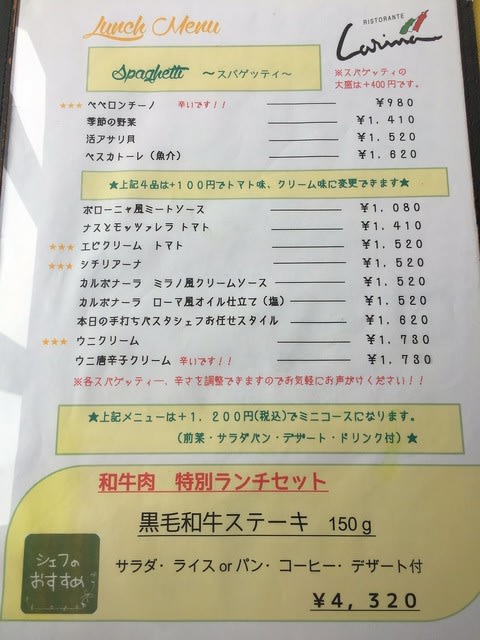 Lunch Menu
RISTORANTE
Carina
Spaghetti ～スパゲッティ～
※スパゲッティの
大盛は+400円です。
★★★ ペペロンチーノ 辛いです!! ¥980
季節の野菜 ¥1,410
活アサリ貝 ¥1,520
ペスカトーレ（魚介） ¥1,620
★上記4品は+100円でトマト味、クリーム味に変更できます★
ボローニャ風ミートソース ¥1,080
ナスとモッツァレラ トマト ¥1,410
★★★ エビクリーム トマト ¥1,520
★★★ シチリアーナ ¥1,520
カルボナーラ ミラノ風クリームソース ¥1,520
カルボナーラ ローマ風オイル仕立て（塩） ¥1,520
本日の手打ちパスタシェフお任せスタイル ¥1,620
★★★ ウニクリーム ¥1,730
ウニ唐辛子クリーム 辛いです!! ¥1,730
※各スパゲッティー、辛さを調整できますのでお気軽にお声がけください!!
★上記メニューは+1,200円(税込)でミニコースになります。
(前菜・サラダパン・デザート・ドリンク付)★
和牛肉 特別ランチセット
黒毛和牛ステーキ 150g
シェフの
おすすめ
サラダ・ライスorパン・コーヒー・デザート付
¥4,320